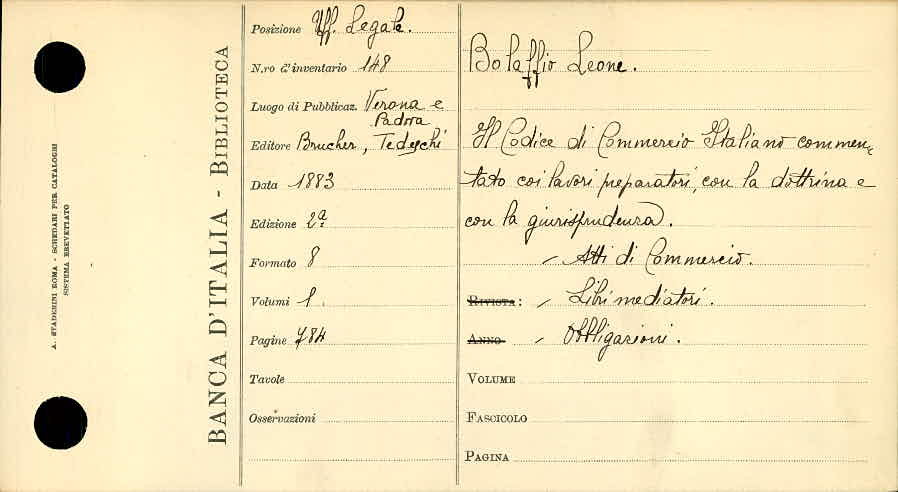 A. STADERINI ROMA - SCHEDARI PER CATALOGHI
SISTEMA BREVETTATO
BANCA D'ITALIA - BIBLIOTECA
Posizione Uff. Legale.
N.ro d'inventario 148
Luogo di Pubblicaz. Verona e
Padova
Editore Drucher, Tedeschi
Data 1883
Edizione 2ª
Formato 8
Volumi 1.
Pagine 784
Tavole
Osservazioni
Bolaffio Leone.
Il Codice di Commercio Italiano commen-
tato coi lavori preparatori, con la dottrina e
con la giurisprudenza.
- Atti di Commercio.
RIVISTA: - Libri mediatori.
ANNO - Obbligazioni.
VOLUME
FASCICOLO
PAGINA